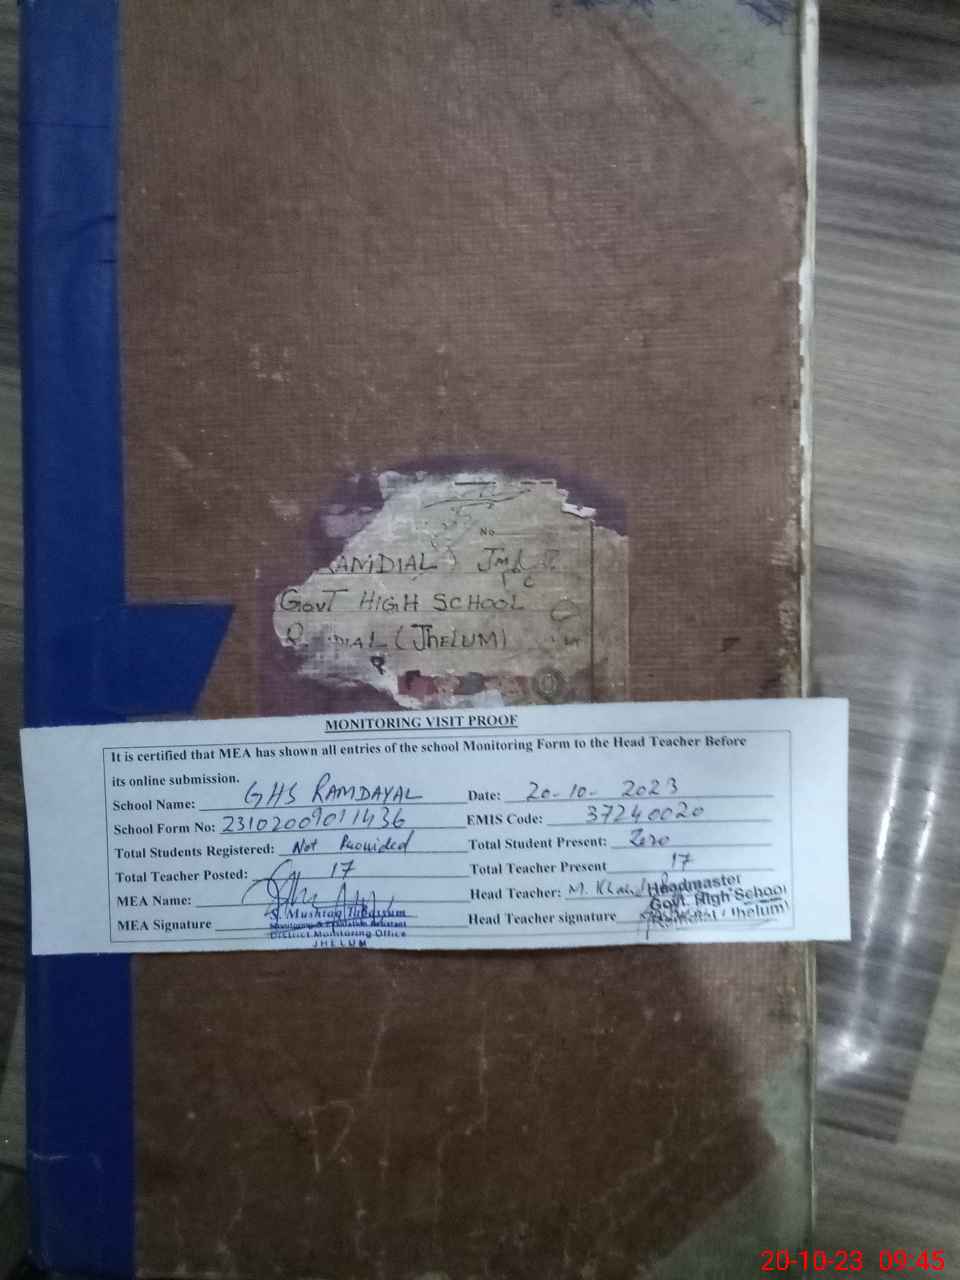 No
RAMDIAL
GOVT HIGH SCHOOL
DIAL (JHELUM)
MONITORING VISIT PROOF
It is certified that MEA has shown all entries of the school Monitoring Form to the Head Teacher Before
its online submission.
School Name: GHS RAMDAYAL Date: 20-10-2023
School Form No: 23102009011436 EMIS Code: 37240020
Total Students Registered: Not Provided Total Student Present: Zero
Total Teacher Posted: 17 Total Teacher Present 17
MEA Name: Head Teacher: M. Khalid
Headmaster
Govt. High School
(Jhelum)
MEA Signature Head Teacher signature
S. Mushtaq Tabassum
Monitoring & Evaluation Assistant
District Monitoring Office
JHELUM
20-10-23 09:45